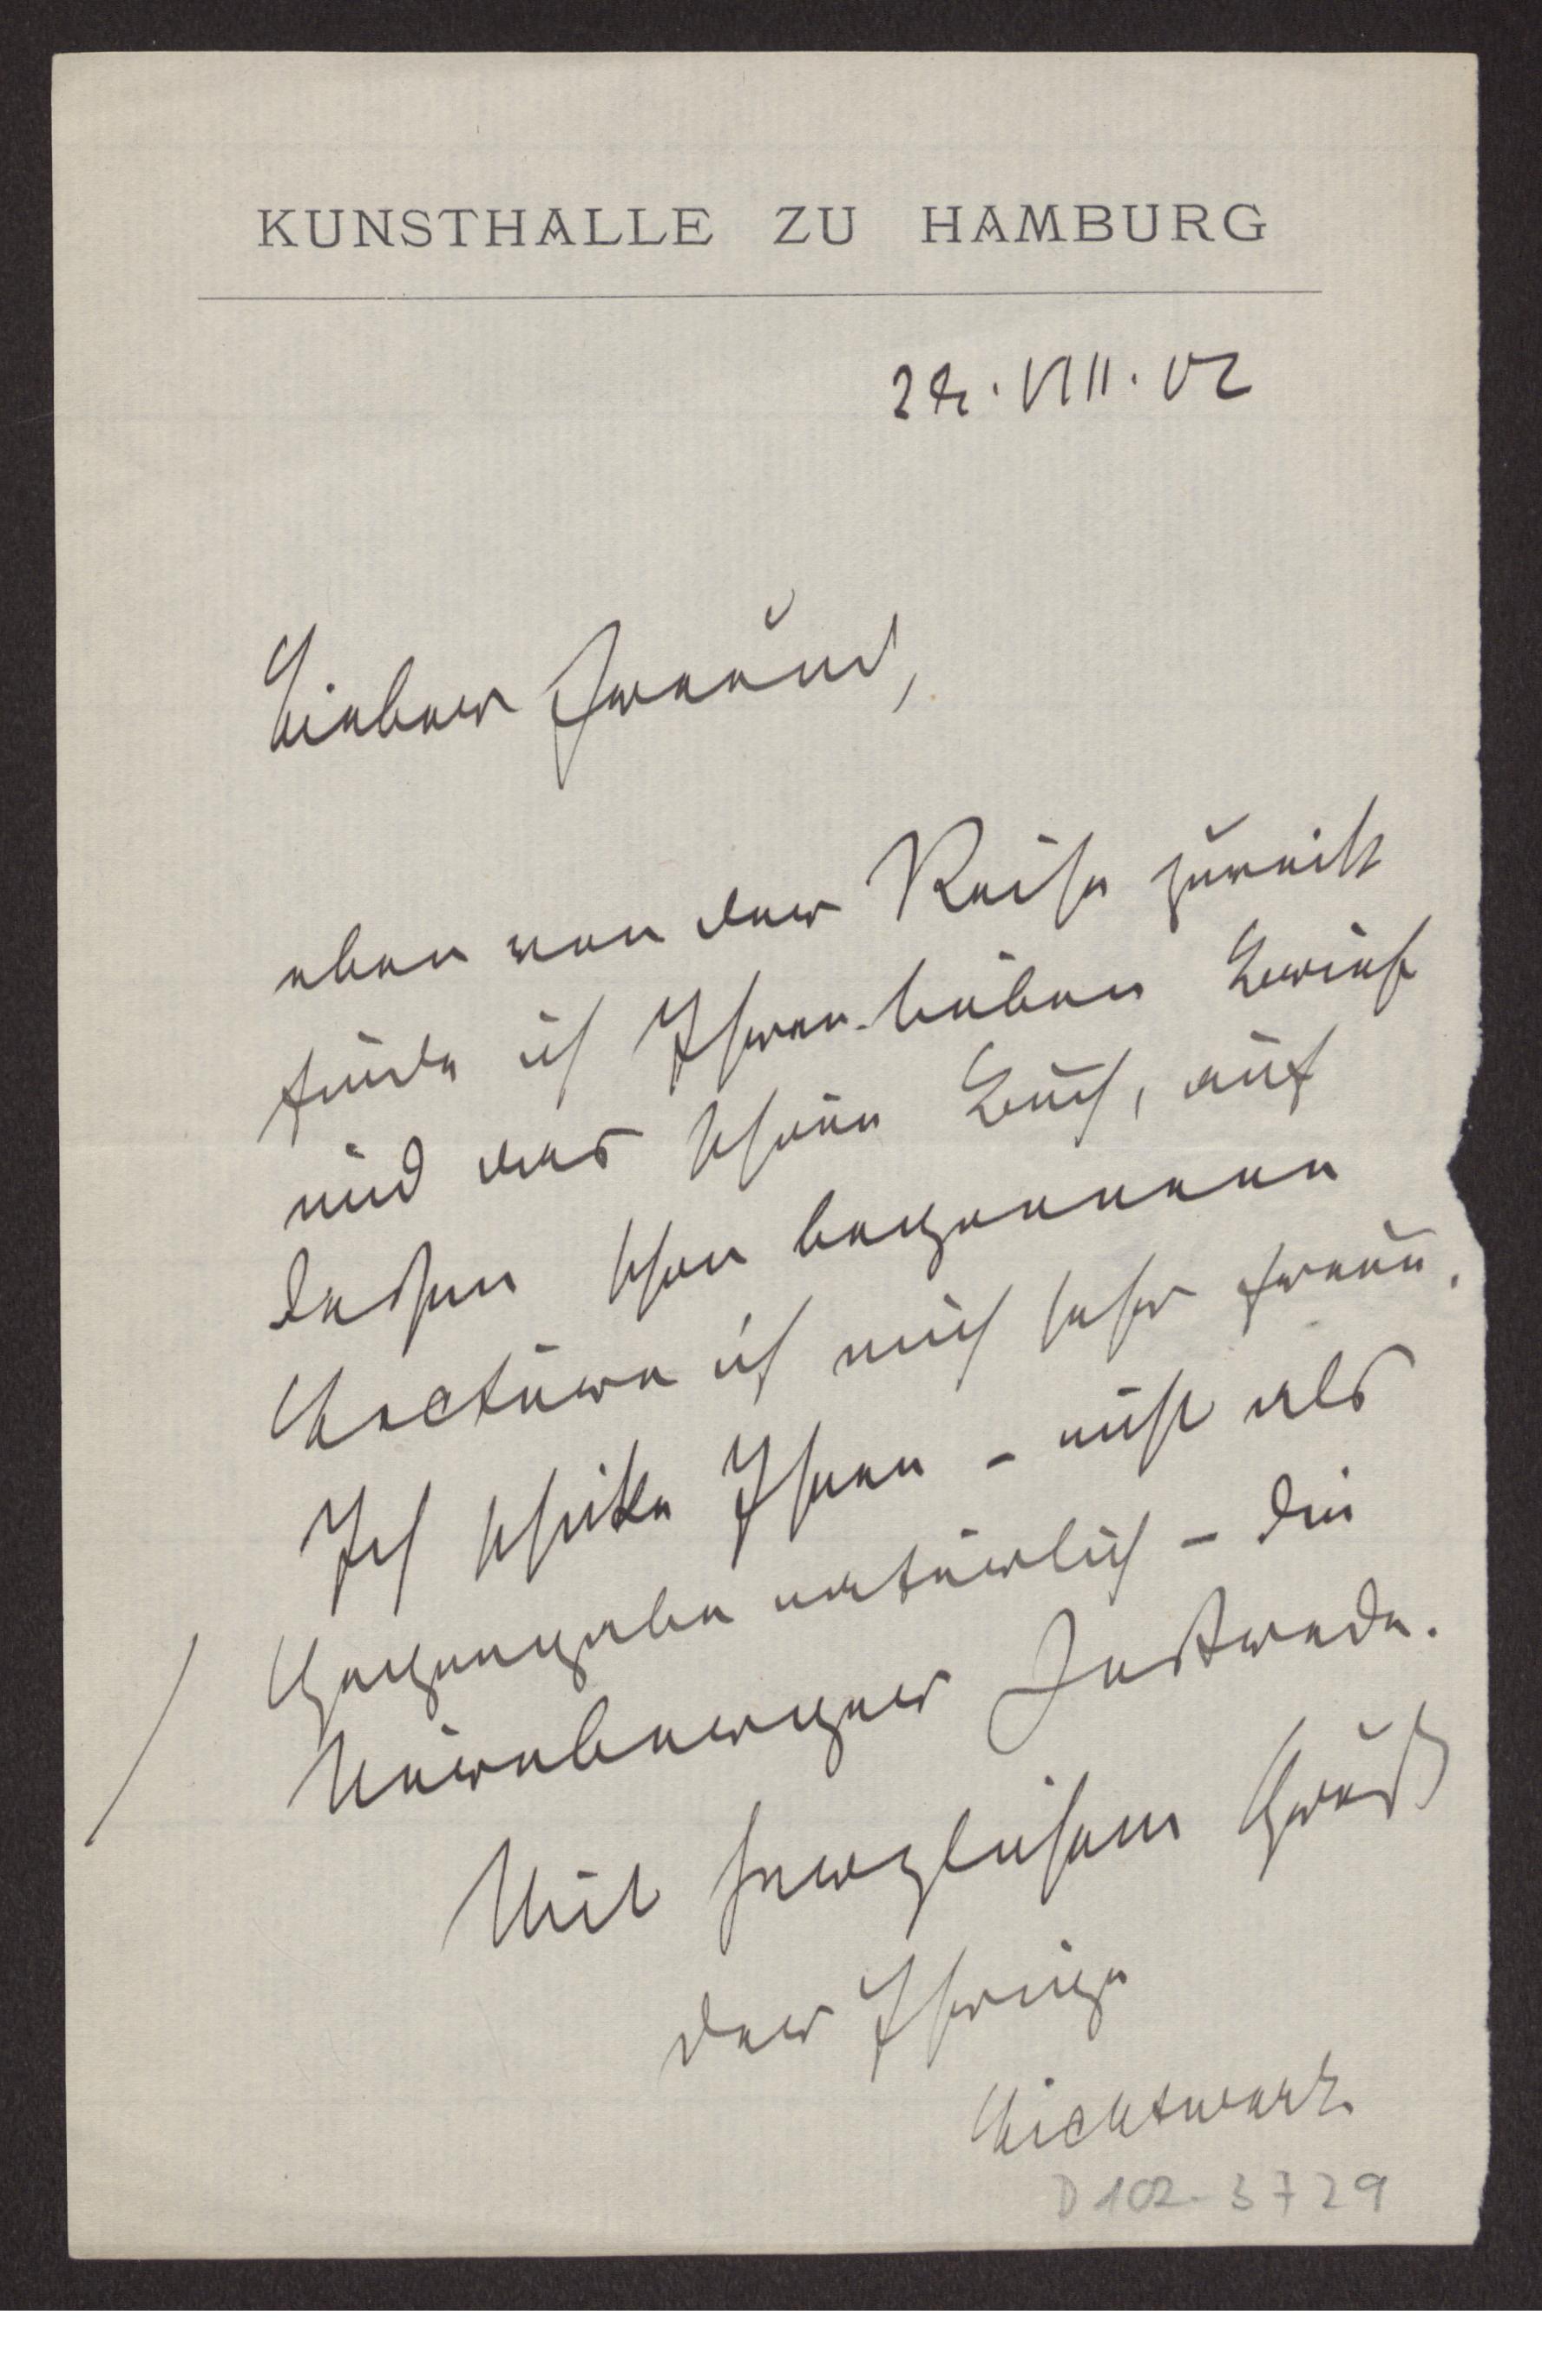 KUNSTHALLE ZU HAMBURG
VIII. 02
Lieber Freund,
eben von der Reise zurück
finde ich Ihren lieben Brief
und das schöne Buch, auf
dessen schon begonnene
Lectüre ich mich sehr freue.
Ich schicke Ihnen - nicht als
Gegengabe natürlich - die
Nürnberger Festrede.
Mit herzlichem Gruß
der Ihrige
Lichtwark
D 102-3729